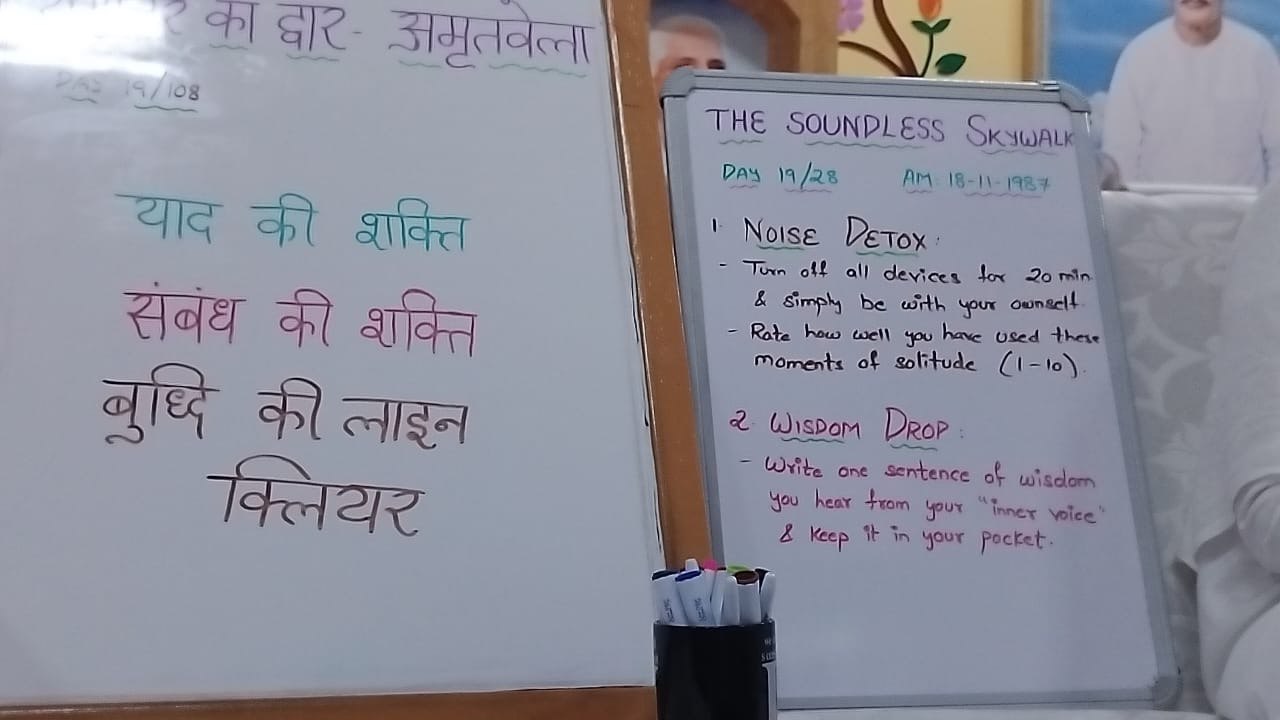 का द्वार - अमृतवेला
DAY 19/108
याद की शक्ति
संबंध की शक्ति
बुध्दि की लाइन
क्लियर
THE SOUNDLESS SKYWALK
DAY 19/28 AM: 18-11-1987
1. NOISE DETOX:
- Turn off all devices for 20 min
& simply be with your ownself.
- Rate how well you have used these
moments of solitude (1-10).
2. WISDOM DROP:
- Write one sentence of wisdom
you hear from your "inner voice"
& keep it in your pocket.